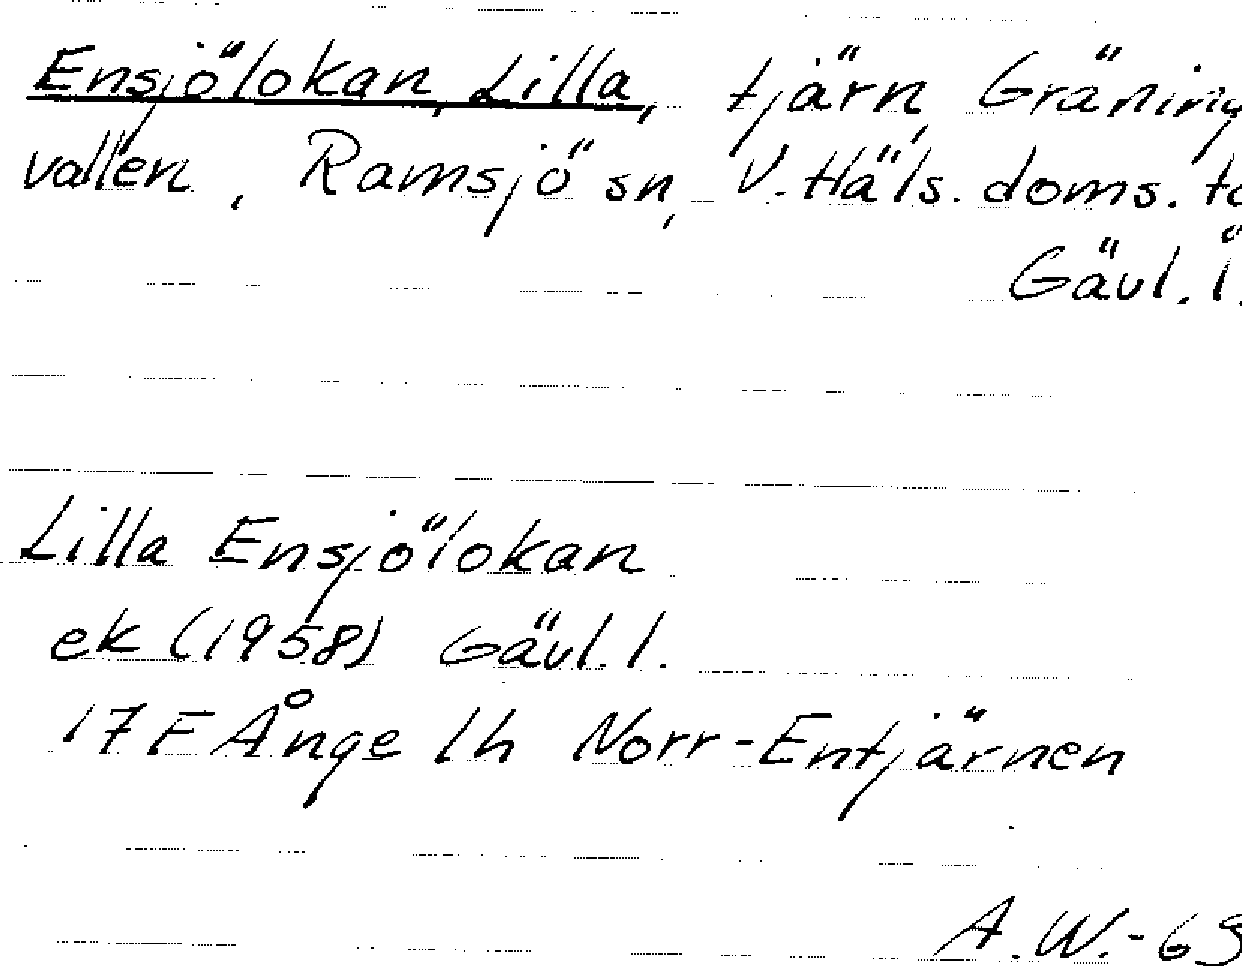 Ensjölokan, Lilla, tjärn, Gräning
vallen, Ramsjö sn, V. Häls. doms.
Gävl. l.
Lilla Ensjölokan
ek (1958) Gävl. l.
17F Ånge 1h Norr-Entjärnen
A.W.-69